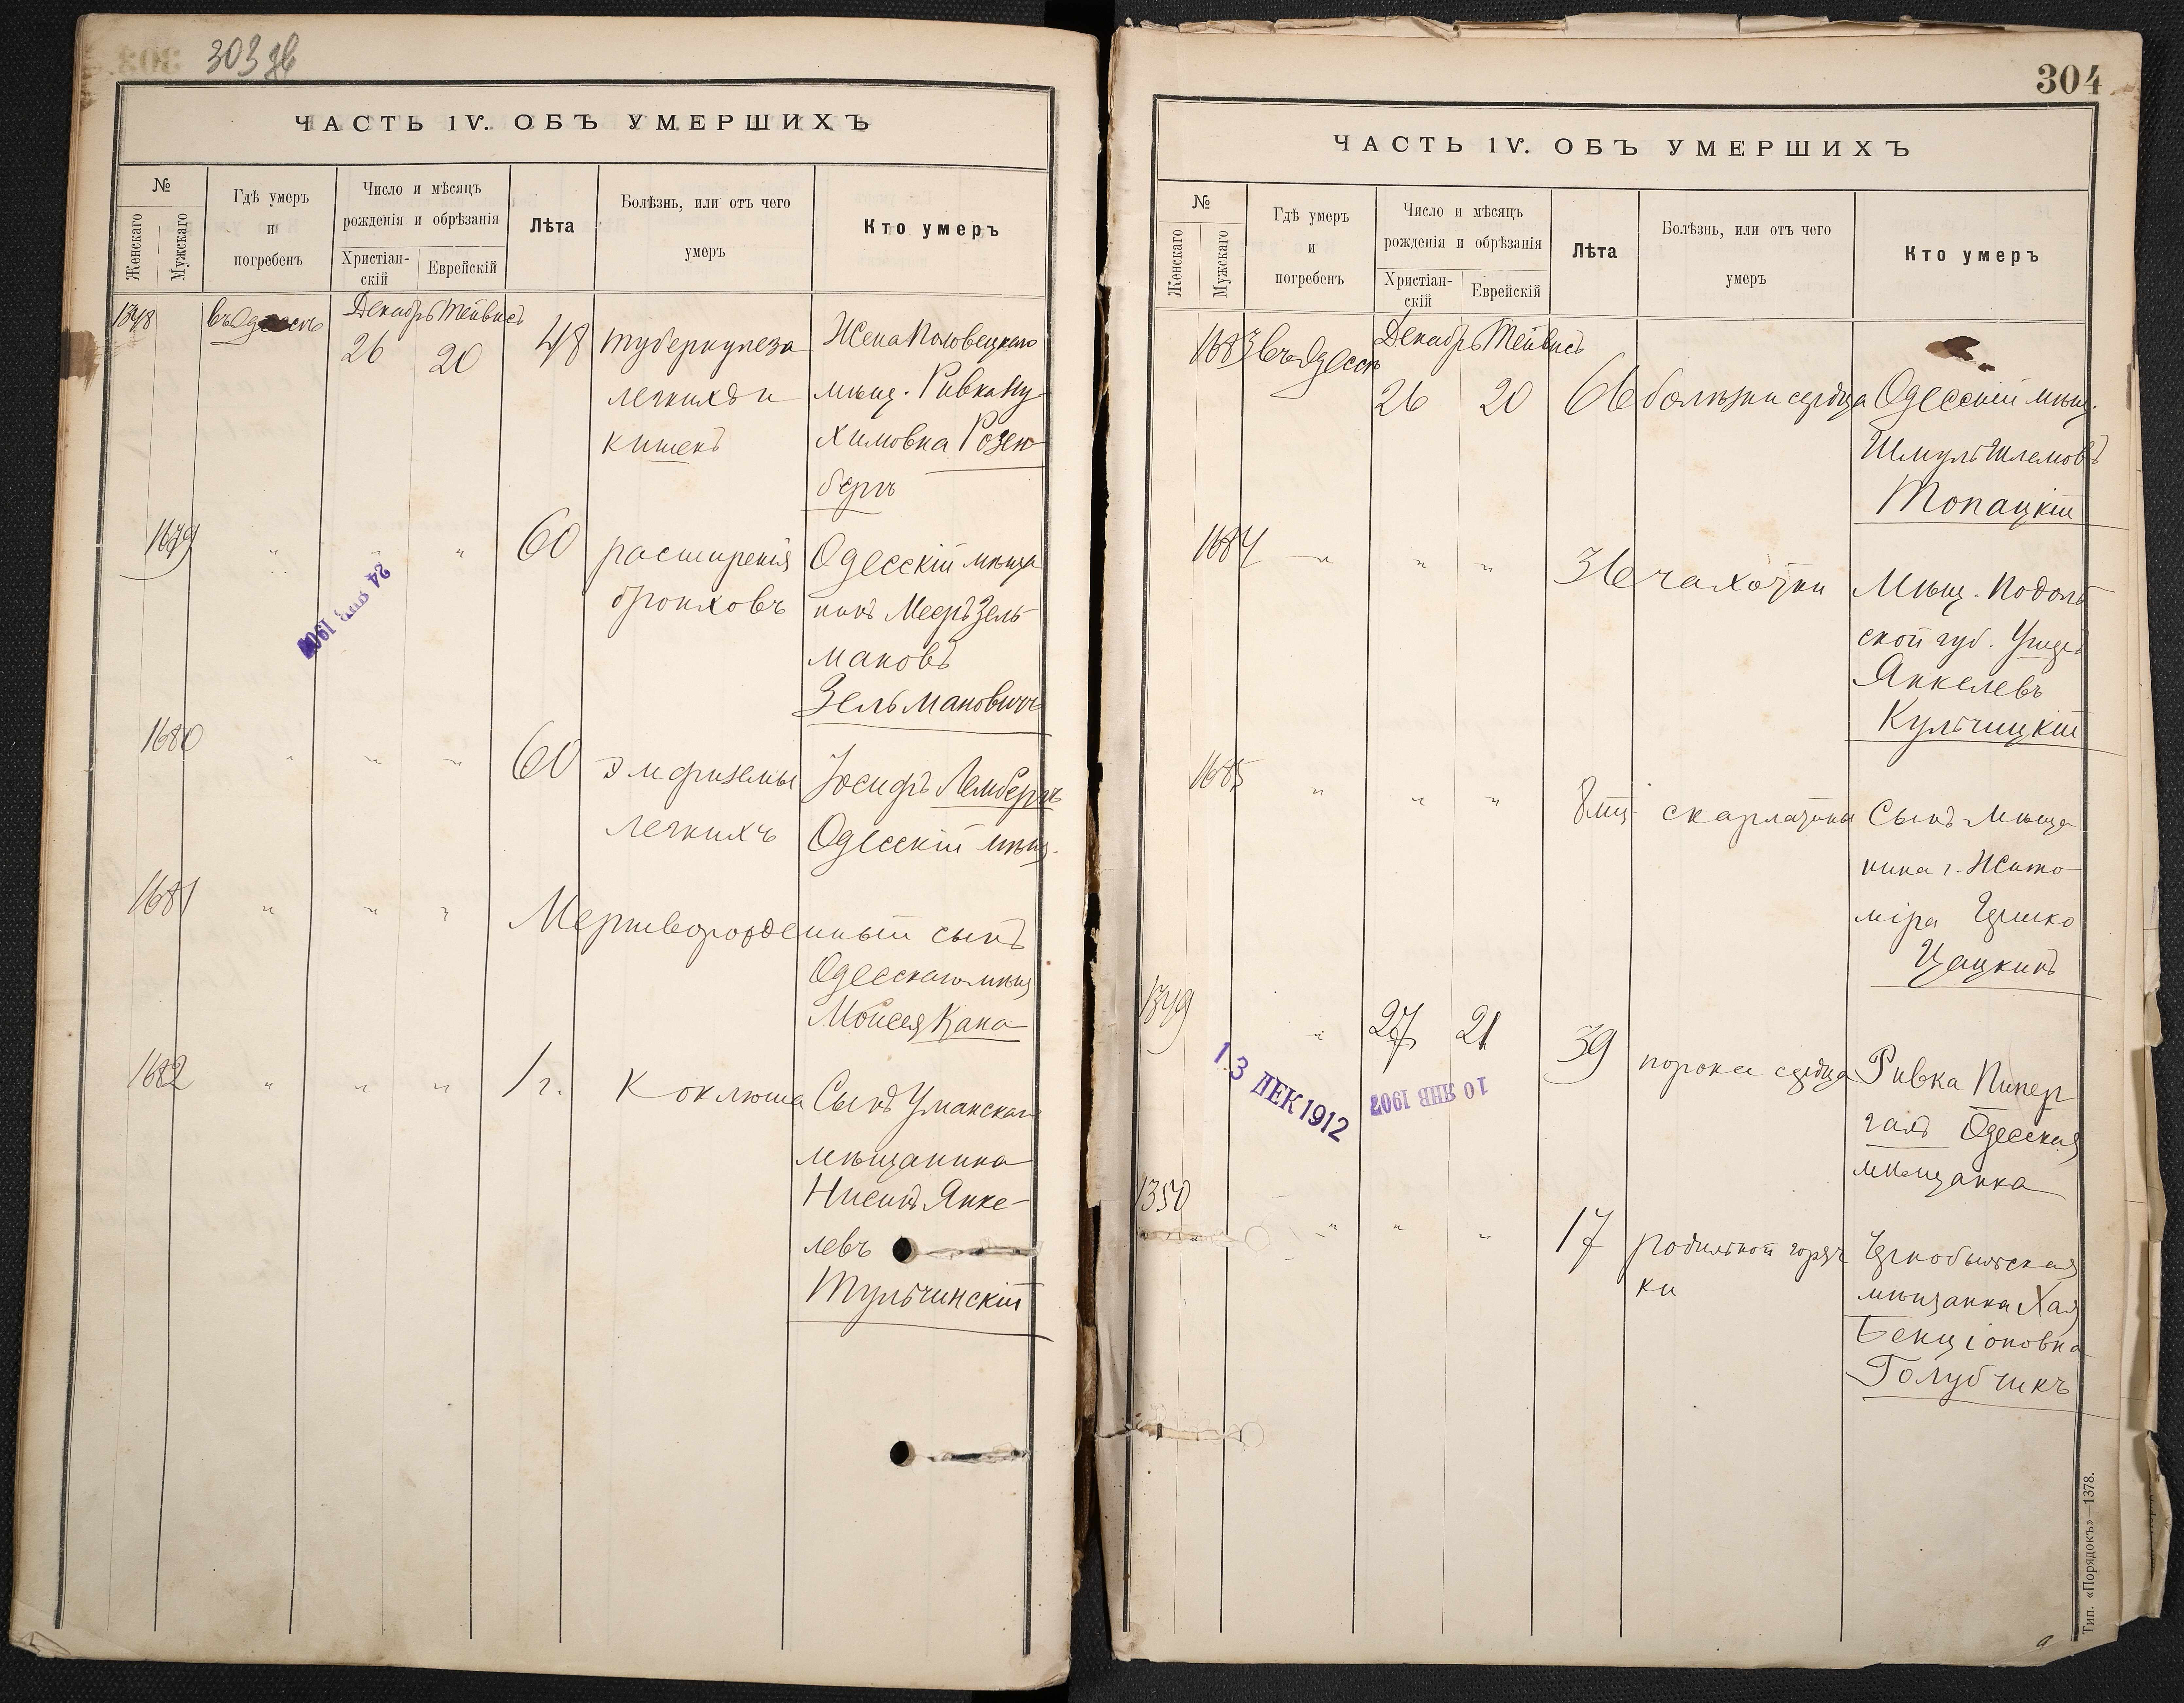 303 зв
ЧАСТЬ IV. ОБЪ УМЕРШИХЪ
№
Женскаго
Мужскаго
Гдѣ умеръ
и
погребенъ
Число и мѣсяцъ
рожденія и обрѣзанія
Христіан-
скій
Еврейскій
Лѣта
Болѣзнь, или отъ чего
умеръ
Кто умеръ
1348
въ Одессѣ
Декабрь Тейвисъ
26 20
48
туберкулеза
легкихъ и
кишекъ
Жена
мѣщ. Ривка Ну
химовна Розен
бергъ
1679
„ „ „
60
расширенія
бронховъ
Одесскій мѣща
нинъ Мееръ Зель
мановъ
Зельмановичъ
24 1907
1680
„ „ „
60
эмфиземы
легкихъ
Іосифъ Лембергъ
Одесскій мѣщ.
1681
„ „ „
Мертворожденный сынъ
Одесскаго мѣщ
Моисея Кана
1682
„ „ „
1 г.
Коклюша
Сынъ Уманскаго
мѣщанина
Нисинъ Янке-
левъ
Тульчинскій
304
ЧАСТЬ IV. ОБЪ УМЕРШИХЪ
№
Женскаго
Мужскаго
Гдѣ умеръ
и
погребенъ
Число и мѣсяцъ
рожденія и обрѣзанія
Христіан-
скій
Еврейскій
Лѣта
Болѣзнь, или отъ чего
умеръ
Кто умеръ
1683
въ Одессѣ
Декабрь Тейвисъ
26 20
66
болѣзни сердца
Одесскій мѣщ.
Шмуль Шлемовъ
Топацкій
1684
„ „ „
36
чахотки
Мѣщ. Подоль
ской губ.
Янкелевъ
Кульчицкій
1685
„ „ „
8 мѣ
скарлатины
Сынъ мѣща
нина г. Жито
міра Гершко
Цацкинъ
1349
„ 27 21
39
порока сердца
Ривка Пипер
галъ Одесская
мѣщанка
13 ДЕК 1912
10 ЯНВ 1907
1350
„ „ „
17
родильной горяч
ки
Чернобыльская
мѣщанка Хая
Бенціоновна
Голубчикъ
Тип. «Порядокъ»—1378.